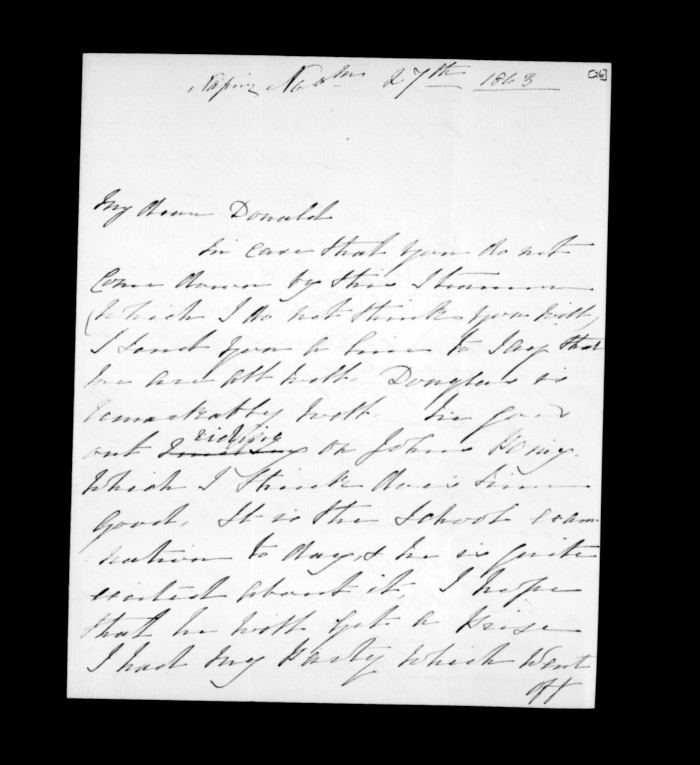 Napier Novbr 27th 1863
[26]
My dear Donald
In case that you do not
Come down by this Steamer
(Which I do not think you Will)
I Send you a line to Say that
We are all Well. Douglas is
remarkably Well. He goes
out riding on Johns Pony.
Which I think does him
good. It is the School exam
nation to day, & he is quite
excited about it, I hope
that he Will get a Prize
I had My Party Which Went
off